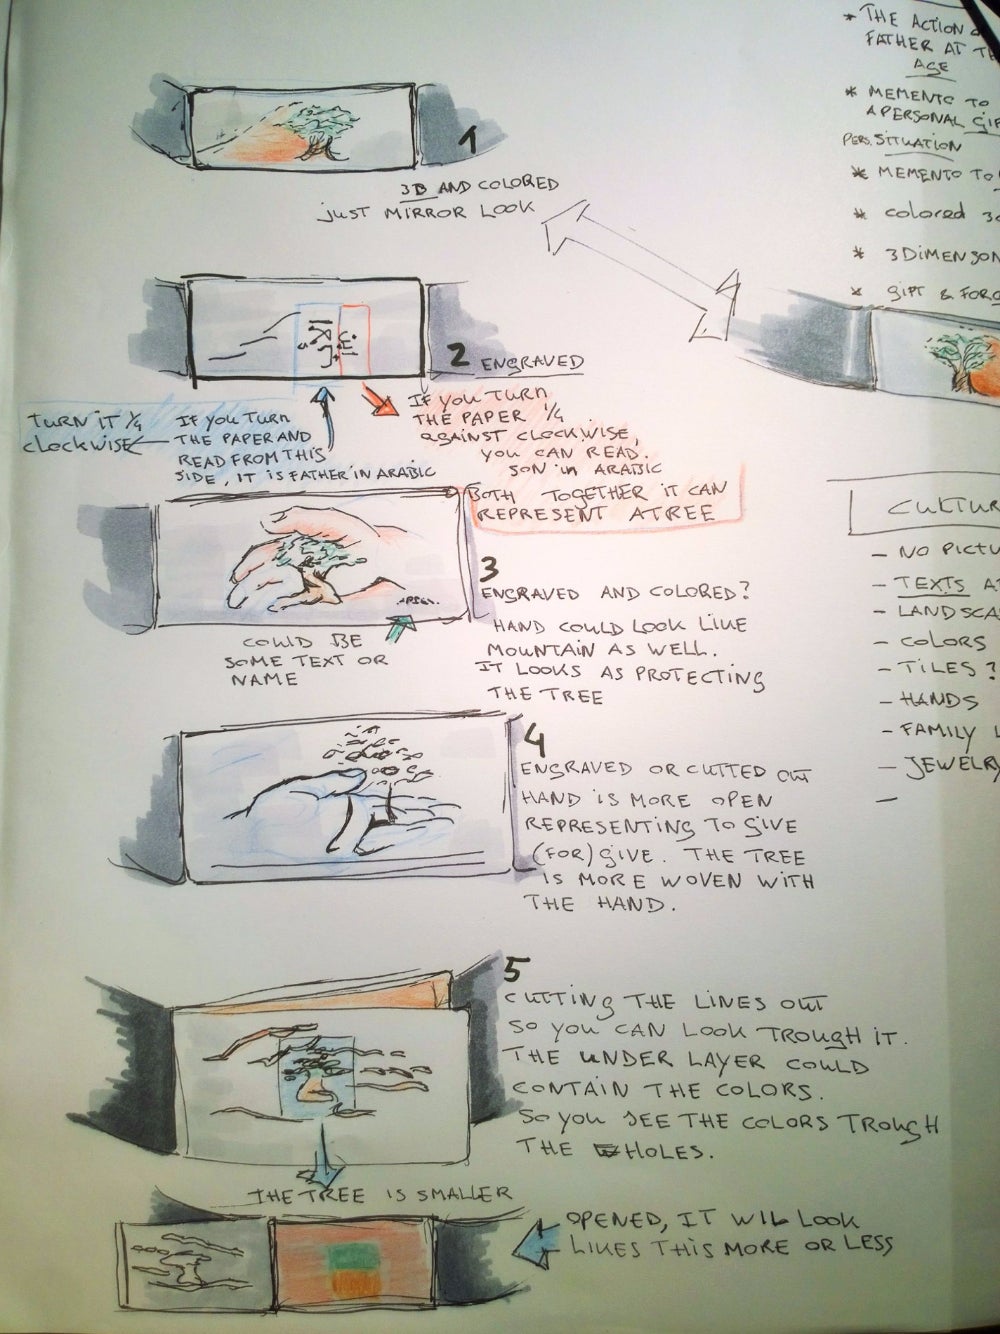 * THE ACTION
FATHER AT
AGE
* MEMENTO TO
A PERSONAL
PERS. SITUATION
* MEMENTO TO
* COLORED
* 3DIMENSON
* GIFT &
1
3D AND COLORED
JUST MIRROR LOOK
2 ENGRAVED
TURN IT 1/4
CLOCKWISE
IF YOU TURN
THE PAPER AND
READ FROM THIS
SIDE, IT IS FATHER IN ARABIC
IF YOU TURN
THE PAPER 1/4
AGAINST CLOCKWISE,
YOU CAN READ.
SON IN ARABIC
BOTH TOGETHER IT CAN
REPRESENT A TREE
3
ENGRAVED AND COLORED?
HAND COULD LOOK LIKE
MOUNTAIN AS WELL.
IT LOOKS AS PROTECTING
THE TREE
COULD BE
SOME TEXT OR
NAME
4
ENGRAVED OR CUTTED OUT
HAND IS MORE OPEN
REPRESENTING TO GIVE
(FOR)GIVE. THE TREE
IS MORE WOVEN WITH
THE HAND.
5
CUTTING THE LINES OUT
SO YOU CAN LOOK TROUGH IT.
THE UNDER LAYER COULD
CONTAIN THE COLORS.
SO YOU SEE THE COLORS TROUGH
THE HOLES.
THE TREE IS SMALLER
OPENED, IT WIL LOOK
LIKES THIS MORE OR LESS
- NO
- TEXTS
-
- COLORS
- TILES?
- HANDS
- FAMILY
- JEWELRY
-